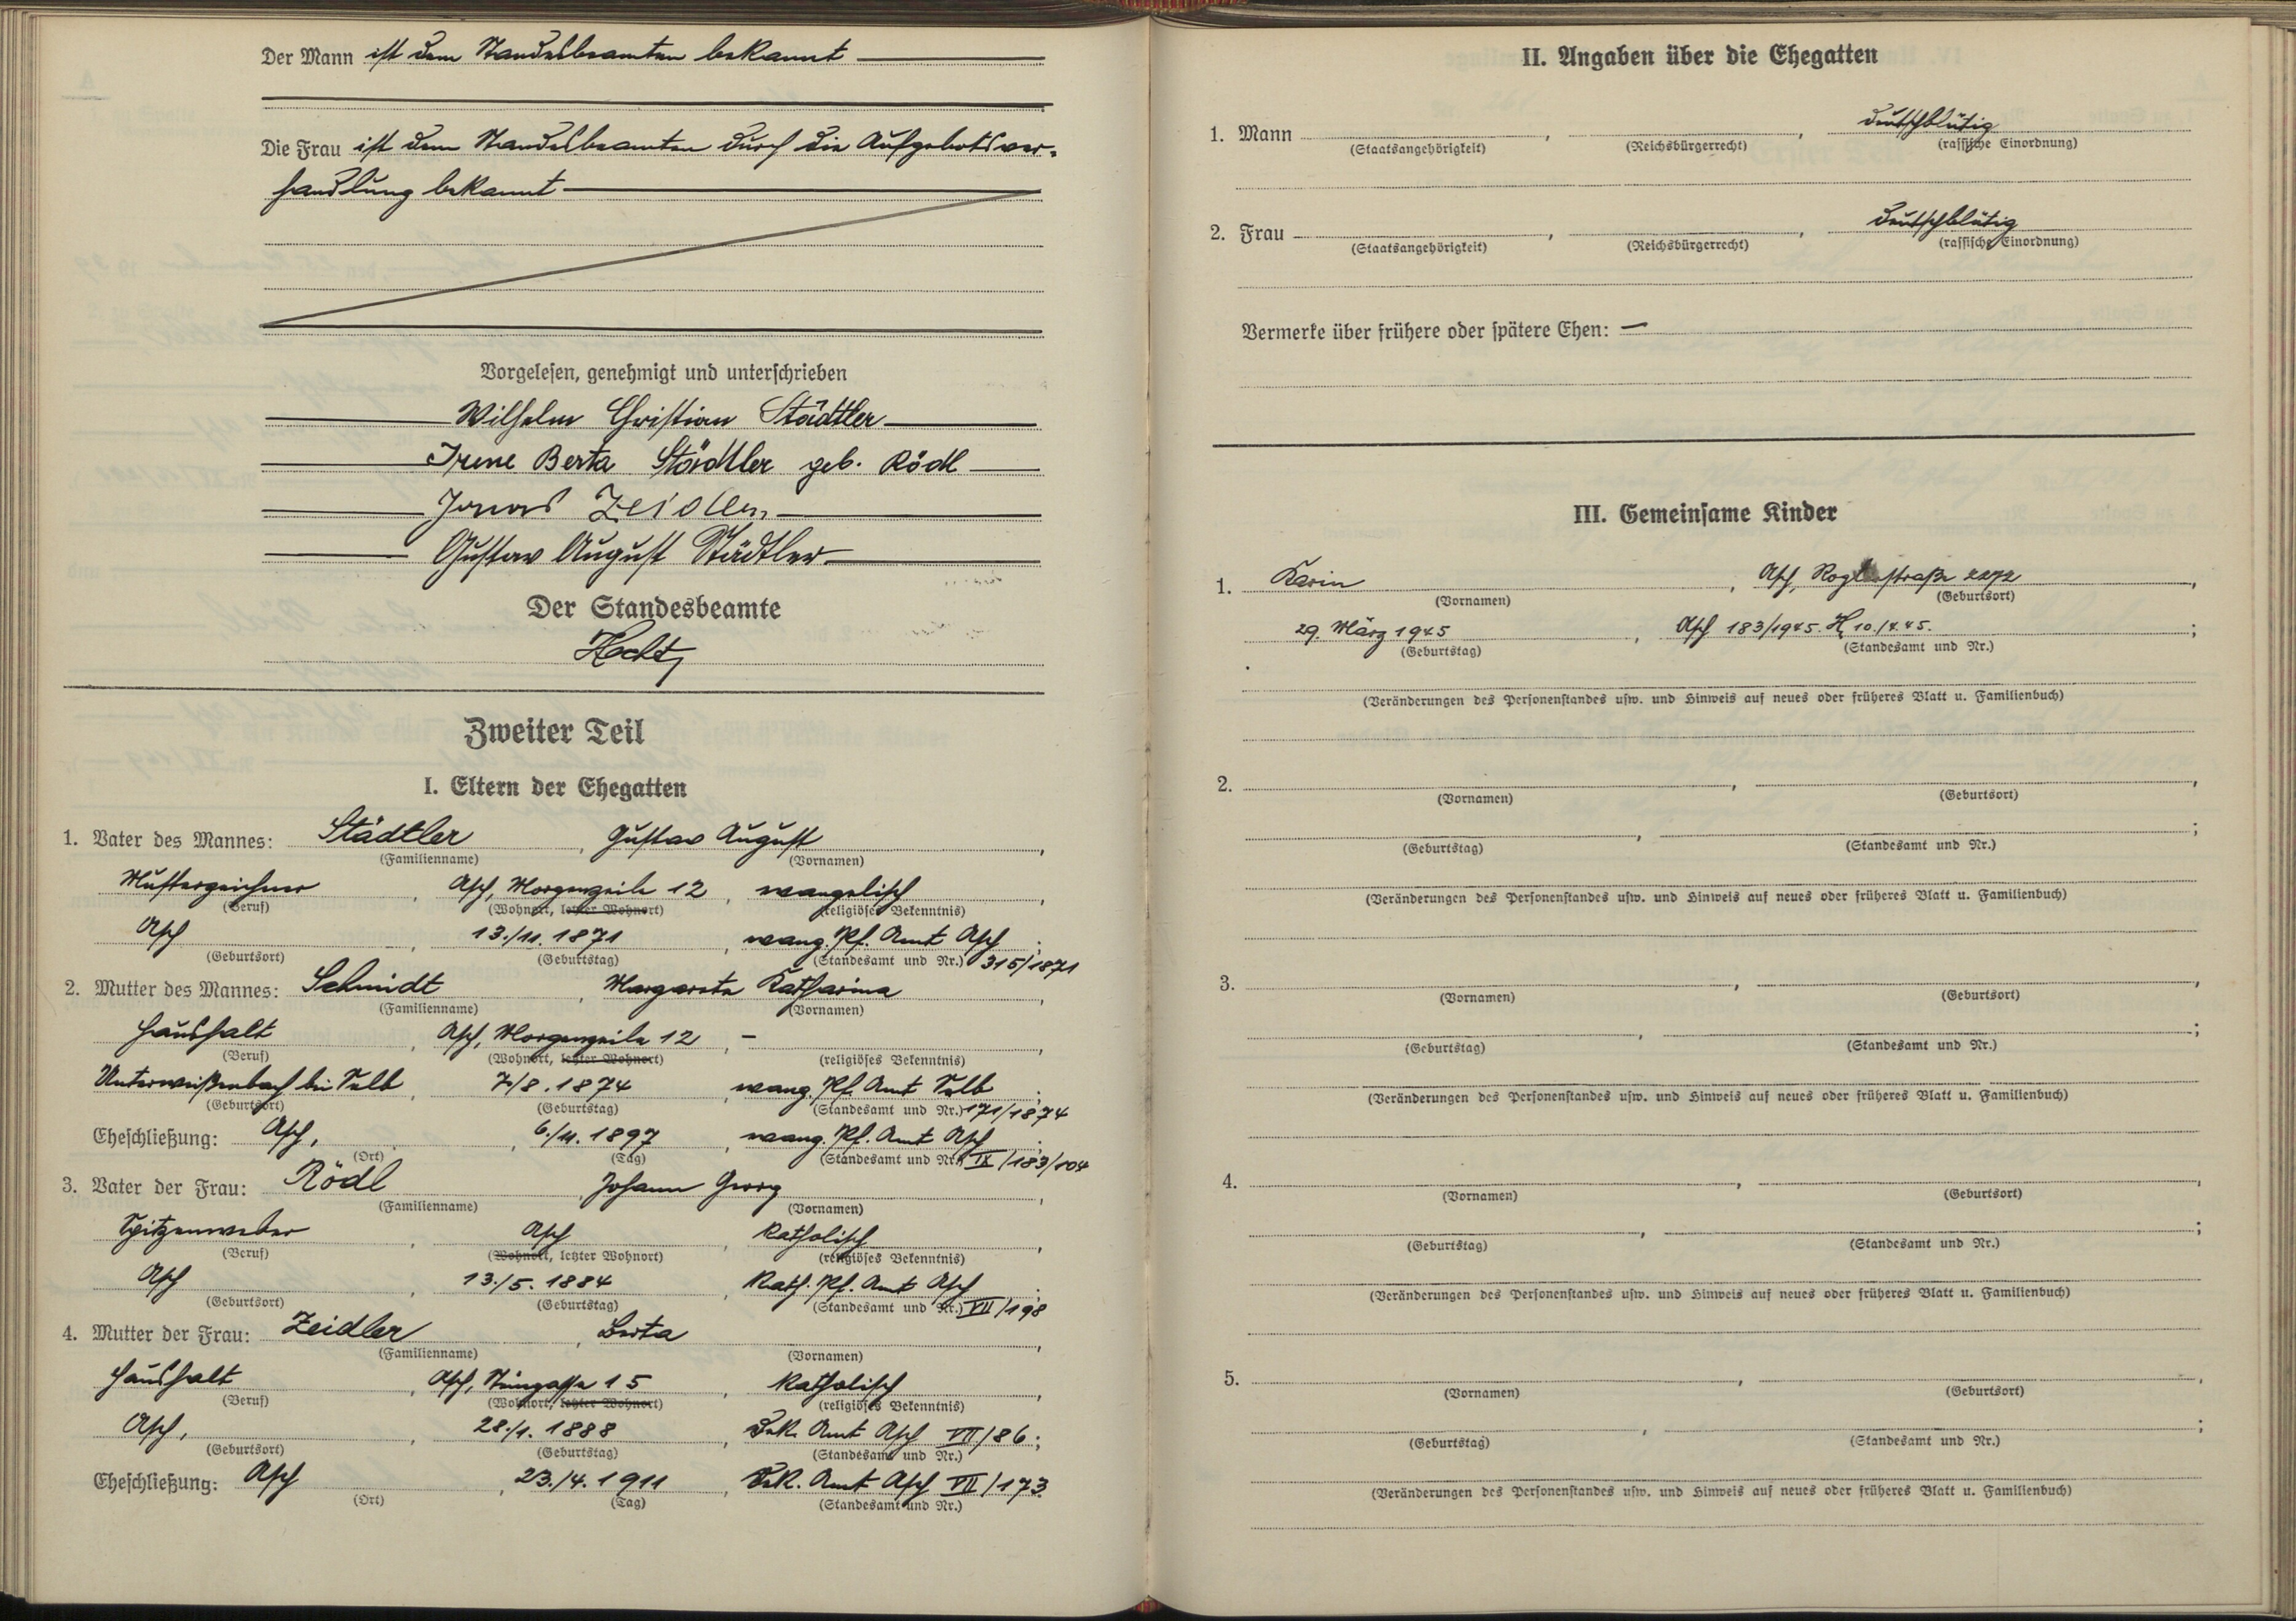 Der Mann ist dem Standesbeamten bekannt
Die Frau ist dem Standesbeamten durch die Aufgebotsver-
handlung bekannt
Vorgelesen, genehmigt und unterschrieben
Wilhelm Christian Städtler
Irene Berta Städtler geb. Rödl
Jonas Zeidler
Gustav August Städtler
Der Standesbeamte
Zweiter Teil
I. Eltern der Ehegatten
1. Vater des Mannes: Städtler, Gustav August,
(Familienname) (Vornamen)
Musterzeichner, Asch, Morgenzeile 12, evangelisch,
(Beruf) (Wohnort, letzter Wohnort) (religiöses Bekenntnis)
Asch, 13./11. 1871, evang. Pf. Amt Asch;
(Geburtsort) (Geburtstag) (Standesamt und Nr.) 315/1871
2. Mutter des Mannes: Schmidt, Margareta Katharina,
(Familienname) (Vornamen)
Haushalt, Asch, Morgenzeile 12, –,
(Beruf) (Wohnort, letzter Wohnort) (religiöses Bekenntnis)
Unterweißenbach bei Selb, 7./8. 1874, evang. Pf. Amt Selb;
(Geburtsort) (Geburtstag) (Standesamt und Nr.) 171/1874
Eheschließung: Asch, 6./11. 1897, evang. Pf. Amt Asch;
(Ort) (Tag) (Standesamt und Nr.) IX/183/104
3. Vater der Frau: Rödl, Johann Georg,
(Familienname) (Vornamen)
Spitzenweber, Asch, katholisch,
(Beruf) (Wohnort, letzter Wohnort) (religiöses Bekenntnis)
Asch, 13./5. 1884, Kath. Pf. Amt Asch;
(Geburtsort) (Geburtstag) (Standesamt und Nr.) VII/198
4. Mutter der Frau: Zeidler, Berta,
(Familienname) (Vornamen)
Haushalt, Asch, 15, katholisch,
(Beruf) (Wohnort, letzter Wohnort) (religiöses Bekenntnis)
Asch, 28./1. 1888, Dek. Amt Asch VII/86;
(Geburtsort) (Geburtstag) (Standesamt und Nr.)
Eheschließung: Asch, 23./4. 1911, Dek. Amt Asch VII/173.
(Ort) (Tag) (Standesamt und Nr.)
II. Angaben über die Ehegatten
1. Mann , , deutschblütig
(Staatsangehörigkeit) (Reichsbürgerrecht) (rassische Einordnung)
2. Frau , , deutschblütig
(Staatsangehörigkeit) (Reichsbürgerrecht) (rassische Einordnung)
Vermerke über frühere oder spätere Ehen: —
III. Gemeinsame Kinder
1. Karin, Asch, 2272,
(Vornamen) (Geburtsort)
29. März 1945, Asch 183/1945. 10./4.45.;
(Geburtstag) (Standesamt und Nr.)
(Veränderungen des Personenstandes usw. und Hinweis auf neues oder früheres Blatt u. Familienbuch)
2. , ,
(Vornamen) (Geburtsort)
, ;
(Geburtstag) (Standesamt und Nr.)
(Veränderungen des Personenstandes usw. und Hinweis auf neues oder früheres Blatt u. Familienbuch)
3. , ,
(Vornamen) (Geburtsort)
, ;
(Geburtstag) (Standesamt und Nr.)
(Veränderungen des Personenstandes usw. und Hinweis auf neues oder früheres Blatt u. Familienbuch)
4. , ,
(Vornamen) (Geburtsort)
, ;
(Geburtstag) (Standesamt und Nr.)
(Veränderungen des Personenstandes usw. und Hinweis auf neues oder früheres Blatt u. Familienbuch)
5. , ,
(Vornamen) (Geburtsort)
, ;
(Geburtstag) (Standesamt und Nr.)
(Veränderungen des Personenstandes usw. und Hinweis auf neues oder früheres Blatt u. Familienbuch)